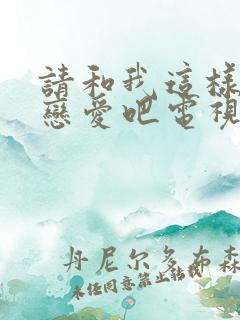 請和我這樣
戀愛吧電視
丹尼尔多布森
未经同意禁止转载